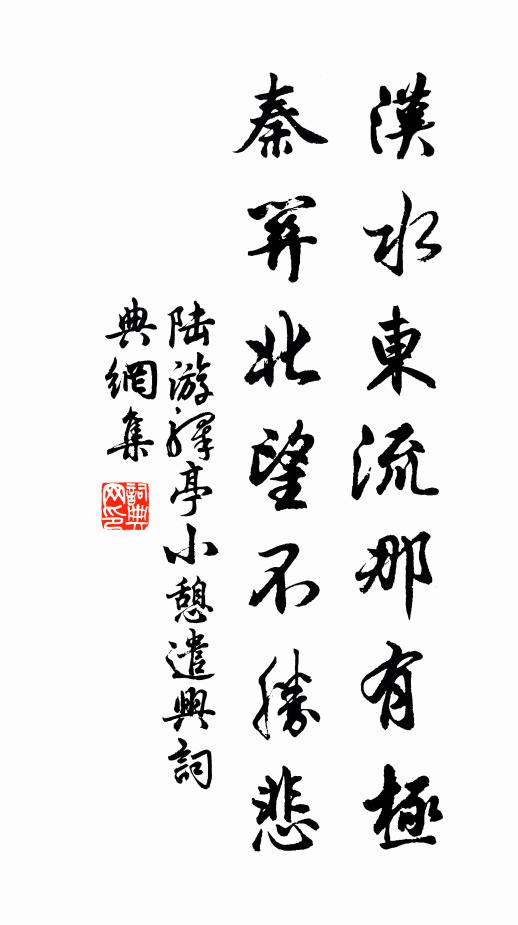 漢水東流那有極
秦關北望不勝悲
陆游驛亭小憩遣興詞
典網集
詞典網印